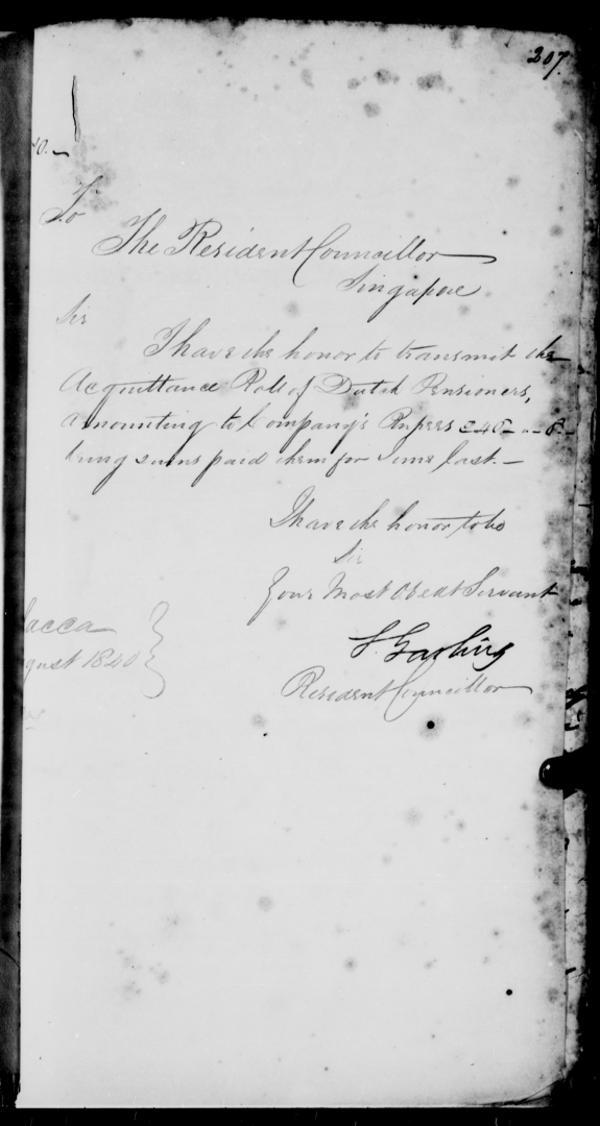 207.
To
The Resident Councillor
Singapore
Sir
I have the honor to transmit the
Acquittance Roll of Dutch Pensioners,
amounting to Company's Rupees
being sums paid them for June last. —
I have the honor to be
Sir
Your Most Obedt Servant
S. Garling
Resident Councillor
lacca
gust 1840